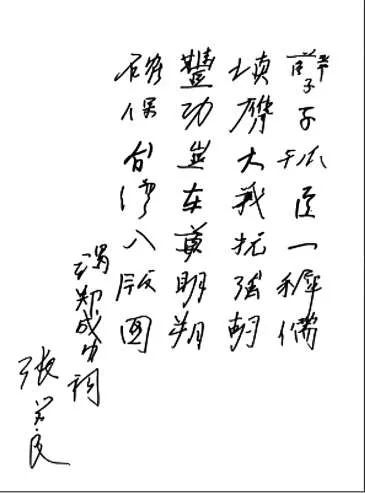 孽子孤臣一稺儒
填膺大義抗强胡
豐功豈在尊明朔
確保台湾入版圖
謁郑成功祠
張学良